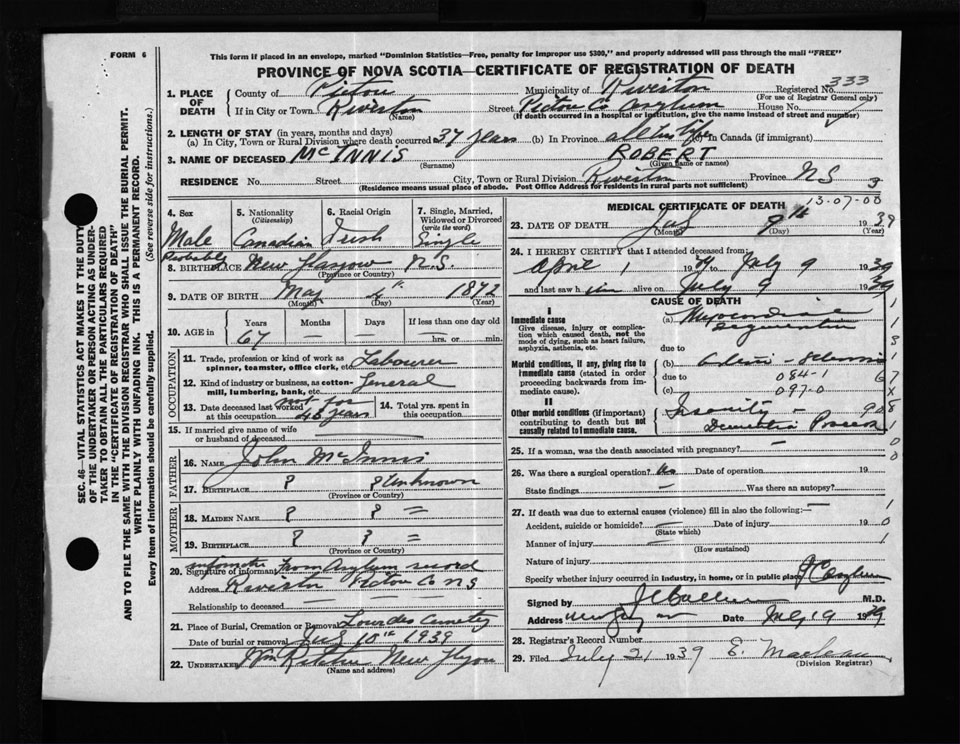 FORM 6
This form if placed in an envelope, marked "Dominion Statistics—Free, penalty for improper use $300," and properly addressed will pass through the mail "FREE"
PROVINCE OF NOVA SCOTIA—CERTIFICATE OF REGISTRATION OF DEATH
1. PLACE OF DEATH
County of Pictou Municipality of Riverton Registered No. 333
(For use of Registrar General only)
If in City or Town Riverton Street Pictou Co Asylum House No.
(Name) (If death occurred in a hospital or institution, give the name instead of street and number)
2. LENGTH OF STAY (in years, months and days)
(a) In City, Town or Rural Division where death occurred 37 years (b) In Province all his life (c) In Canada (if immigrant)
3. NAME OF DECEASED McINNIS ROBERT
(Surname) (Given name or names)
RESIDENCE No. Street City, Town or Rural Division Riverton Province NS
(Residence means usual place of abode. Post Office Address for residents in rural parts not sufficient)
3
13-07-00
4. Sex
Male
5. Nationality (Citizenship)
Canadian
6. Racial Origin
Irish
7. Single, Married, Widowed or Divorced (write the word)
Single
Probably
8. BIRTHPLACE New Glasgow N.S.
(Province or Country)
9. DATE OF BIRTH May 4th 1872
(Month) (Day) (Year)
10. AGE in
Years Months Days If less than one day old
67 — — hrs. or min.
OCCUPATION
11. Trade, profession or kind of work as spinner, teamster, office clerk, etc. Labourer
12. Kind of industry or business, as cotton-mill, lumbering, bank, etc. General
13. Date deceased last worked at this occupation not for 45 years
14. Total yrs. spent in this occupation
15. If married give name of wife or husband of deceased
FATHER
16. NAME John McInnis
17. BIRTHPLACE ? ? Unknown
(Province or Country)
MOTHER
18. MAIDEN NAME ? ? =
19. BIRTHPLACE ? ? =
(Province or Country)
20. Signature of informant From Asylum record
Address Riverton Pictou Co NS
Relationship to deceased
21. Place of Burial, Cremation or Removal Lourdes Cemetery
Date of burial or removal July 10th 1939
22. UNDERTAKER New Glasgow
(Name and address)
MEDICAL CERTIFICATE OF DEATH
23. DATE OF DEATH July 9th 1939
(Month) (Day) (Year)
24. I HEREBY CERTIFY that I attended deceased from:
April 1 19 to July 9 1939
and last saw him alive on July 9 1939
CAUSE OF DEATH
I
Immediate cause
Give disease, injury or complication which caused death, not the mode of dying, such as heart failure, asphyxia, asthenia, etc.
(a)
due to
Morbid conditions, if any, giving rise to immediate cause (stated in order proceeding backwards from immediate cause)
(b)
due to 084-1
(c) 097-0
II
Other morbid conditions (if important) contributing to death but not causally related to immediate cause.
Insanity —
Dementia Praecox
25. If a woman, was the death associated with pregnancy? —
26. Was there a surgical operation? No Date of operation 19
State findings — Was there an autopsy?
27. If death was due to external causes (violence) fill in also the following:—
Accident, suicide or homicide? Date of injury 19
(State which)
Manner of injury
(How sustained)
Nature of injury
Specify whether injury occurred in industry, in home, or in public place
Signed by M.D.
Address Date July 9 1939
28. Registrar's Record Number
29. Filed July 21 1939 E. Maclean
(Division Registrar)
SEC. 46—VITAL STATISTICS ACT MAKES IT THE DUTY OF THE UNDERTAKER OR PERSON ACTING AS UNDERTAKER TO OBTAIN ALL THE PARTICULARS REQUIRED IN THE "CERTIFICATE OF REGISTRATION OF DEATH"
AND TO FILE THE SAME WITH THE DIVISION REGISTRAR WHO SHALL ISSUE THE BURIAL PERMIT.
WRITE PLAINLY WITH UNFADING INK. THIS IS A PERMANENT RECORD.
Every item of information should be carefully supplied. (See reverse side for instructions.)